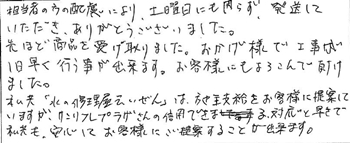 担当者の方の配慮により、土曜日にも関らず、発送して
いただき、ありがとうございました。
先ほど商品を受け取りました。おかげ様で工事が
1日早く行う事が出来ます。お客様にもよろこんで頂け
ました。
私共「水の修理屋えいぜん」は、施主支給をお客様に提案して
いますが、クリフレプラザさんの信用できる対応と早さで
私共も、安心してお客様にご提案することが出来ます。